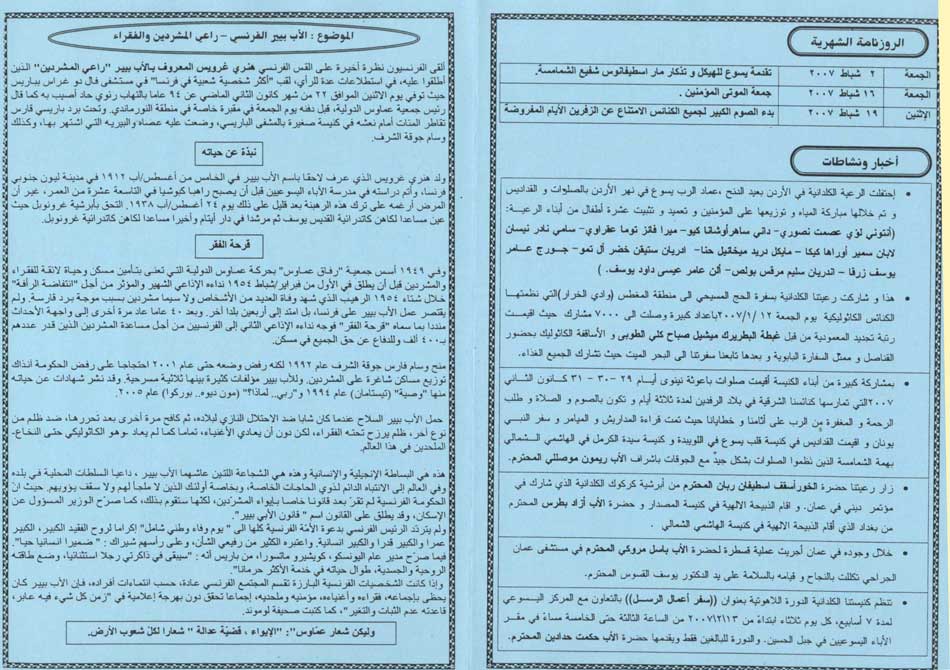 الروزنامة الشهرية
الجمعة ٢ شباط ٢٠٠٧ تقدمة يسوع للهيكل و تذكار مار اسطيفانوس شفيع الشمامسة.
الجمعة ١٦ شباط ٢٠٠٧ جمعة الموتى المؤمنين .
الإثنين ١٩ شباط ٢٠٠٧ بدء الصوم الكبير لجميع الكنائس الامتناع عن الزفرين الأيام المفروضة
أخبار ونشاطات
• إحتفلت الرعية الكلدانية في الأردن بعيد الدنح ،عماد الرب يسوع في نهر الأردن بالصلوات و القداديس
و تم خلالها مباركة المياه و توزيعها على المؤمنين و تعميد و تثبيت عشرة أطفال من أبناء الرعية:
(أنتوني لؤي عصمت نصوري- داني ساهرأوشانا كيو- ميرا فائز توما عقراوي- سامي نادر نيسان
لابان سمير أوراها كيكا - مايكل دريد ميخائيل حنا- ادريان ستيفن خضر آل تمو- جورج عامر
يوسف زرقا - اندريان سليم مرقس بولص- ألن عامر عيسى داود يوسف. )
• هذا و شاركت رعيتنا الكلدانية بسفرة الحج المسيحي الى منطقة المغطس (وادي الخرار)التي نظمتها
الكنائس الكاثوليكية يوم الجمعة ٢٠٠٧/١/١٢باعداد كبيرة وصلت الى ٧٠٠٠ مشارك حيث اقيمت
رتبة تجديد المعمودية من قبل غبطة البطريرك ميشيل صباح كلي الطوبى و الأساقفة الكاثوليك بحضور
القناصل و ممثل السفارة البابوية و بعدها تابعنا سفرتنا الى البحر الميت حيث تشارك الجميع الغذاء.
• بمشاركة كبيرة من أبناء الكنيسة أقيمت صلوات باعوثة نينوى أيام ٢٩ -٣٠ - ٣١ كانون الثاني
٢٠٠٧التي تمارسها كنائسنا الشرقية في بلاد الرفدين لمدة ثلاثة أيام و تكون بالصوم و الصلاة و طلب
الرحمة و المغفرة من الرب على أثامنا و خطايانا حيث تمت قراءة المداريش و الميامر و سفر النبي
يونان و اقيمت القداديس في كنيسة قلب يسوع في اللويبدة و كنيسة سيدة الكرمل في الهاشمي الشمالي
بهمة الشمامسة الذين نظموا الصلوات بشكل جيد مع الجوقات باشراف الأب ريمون موصللي المحترم.
• زار رعيتنا حضرة الخورأسقف اسطيفان ربان المحترم من أبرشية كركوك الكلدانية الذي شارك في
مؤتمر ديني في عمان. و اقام الذبيحة الالهية في كنيسة المصدار و حضرة الأب آزاد بطرس المحترم
من بغداد الذي أقام الذبيحة الالهية في كنيسة الهاشمي الشمالي .
• خلال وجوده في عمان أجريت عملية قسطرة لحضرة الأب باسل مروكي المحترم في مستشفى عمان
الجراحي تكللت بالنجاح و قيامه بالسلامة على يد الدكتور يوسف القسوس المحترم.
• تنظم كنيستنا الكلدانية الدورة اللاهوتية بعنوان ((سفر أعمال الرسل)) بالتعاون مع المركز اليسوعي
لمدة ٧ أسابيع، كل يوم ثلاثاء ابتداءً من ٢٠٠٧/٢/١٣ من الساعة الثالثة حتى الخامسة مساءً في مقر
الأباء اليسوعيين في جبل الحسين. والدورة للبالغين فقط ويقدمها حضرة الأب حكمت حدادين المحترم.
الموضوع : الأب بيير الفرنسي – راعي المشردين والفقراء
ألقى الفرنسيون نظرة أخيرة على القس الفرنسي هنري غرويس المعروف بالأب بيير "راعي المشردين" الذين
أطلقوا عليه، في استطلاعات عدة للرأي، لقب "أكثر شخصية شعبية في فرنسا" في مستشفى فال دو غراس بباريس
حيث توفي يوم الاثنين الموافق ٢٢ من شهر كانون الثاني الماضي عن ٩٤ عاما بالتهاب رئوي حاد أصيب به كما قال
رئيس جمعية عماوس الدولية، قبل دفنه يوم الجمعة في مقبرة خاصة في منطقة النورماندي. وتحت برد باريسي قارس
تقاطر المئات أمام نعشه في كنيسة صغيرة بالمشفى الباريسي، وضعت عليه عصاه والبيريه التي اشتهر بها، وكذلك
وسام جوقة الشرف.
نبذة عن حياته
ولد هنري غرويس الذي عرف لاحقا باسم الأب بيير في الخامس من أغسطس/آب ١٩١٢ في مدينة ليون جنوبي
فرنسا، وأتم دراسته في مدرسة الآباء اليسوعيين قبل أن يصبح راهبا كبوشيا في التاسعة عشرة من العمر، غير أن
المرض أرغمه على ترك هذه الرهبنة بعد قليل على ذلك يوم ٢٤ أغسطس/آب ١٩٣٨. التحق بأبرشية غرونوبل حيث
عين مساعدا لكاهن كاتدرائية القديس يوسف ثم مرشدا في دار أيتام وأخيرا مساعدا لكاهن كاتدرائية غرونوبل.
قرحة الفقر
وفي ١٩٤٩ أسس جمعية "رفاق عماوس" بحركة عماوس الدولية التي تعنى بتأمين مسكن وحياة لائقة للفقراء
والمشردين قبل أن يطلق في الأول من فبراير/شباط ١٩٥٤ نداءه الإذاعي الشهير والمؤثر من أجل "انتفاضة الرأفة"
خلال شتاء ١٩٥٤ الرهيب الذي شهد وفاة العديد من الأشخاص ولا سيما مشردين بسبب موجة برد قارسة. ولم
يقتصر عمل الأب بيير على فرنسا، بل امتد إلى أربعين بلدا آخر. وبعد ٤٠ عاما عاد مرة أخرى إلى واجهة الأحداث
منددا بما سماه "قرحة الفقر" فوجه نداءه الإذاعي الثاني إلى الفرنسيين من أجل مساعدة المشردين الذين قدر عددهم
بـ٤٠٠ ألف وللدفاع عن حق الجميع في مسكن.
منح وسام فارس جوقة الشرف عام ١٩٩٢ لكنه رفض وضعه حتى عام ٢٠٠١ احتجاجا على رفض الحكومة آنذاك
توزيع مساكن شاغرة على المشردين. وللأب بيير مؤلفات كثيرة بينها ثلاثية مسرحية. وقد نشر شهادات عن حياته
منها "وصية" (تيستامان) عام ١٩٩٤ و"ربي.. لماذا؟" (مون ديوه.. بوركوا) عام ٢٠٠٥.
حمل الأب بيير السلاح عندما كان شابا ضد الاحتلال النازي لبلاده، ثم كافح مرة أخرى بعد تحررها، ضد ظلم من
نوع آخر، ظلم يرزح تحته الفقراء، لكن دون أن يعادي الأغنياء، تماما كما لم يعاد -وهو الكاثوليكي حتى النخاع-
الملحدين في هذا العالم.
هذه هي البساطة الإنجيلية والإنسانية وهذه هي الشجاعة اللتين عاشهما الأب بيير ، داعيا السلطات المحلية في بلده
وفي العالم إلى الانتباه الدائم لذوي الحاجات الخاصة، وبخاصة أولئك الذين لا ملجأ لهم ولا سقف يؤويهم. حيث أن
الحكومة الفرنسية لم تقرّ بعد قانونا خاصا بإيواء المشرّدين، لكنها ستقوم بذلك، كما صرّح الوزير المسؤول عن
الإسكان، وقد يطلق على القانون اسم " قانون الأبي بيير".
ولم يتردّد الرئيس الفرنسي بدعوة الأمّة الفرنسية كلها الى " يوم وفاء وطني شامل" إكراما لروح الفقيد الكبير، الكبير
عمرا والكبير قدرا والكبير انسانية. واعتبره الكثير من رفيعي الشأن، وعلى رأسهم شيراك : " ضميرا انسانيا حيا".
فيما صرّح مدير عام اليونسكو، كويشيرو ماتسورا، من باريس أنه : "سيبقى في ذاكرتي رجلا استثنائيا، وضع طاقته
الروحية والجسدية، طوال حياته في خدمة الأكثر حرمانا".
وإذا كانت الشخصيات الفرنسية البارزة تقسم المجتمع الفرنسي عادة، حسب انتماءات أفراده، فإن الأب بيير كان
يحظى بإجماعه، فقراءه وأغنياءه، مؤمنيه وملحديه، إجماعا تحقق دون بهرجة إعلامية في "زمن كل شيء فيه عابر،
قاعدته عدم الثبات والتغير"، كما كتبت صحيفة لوموند.
وليكن شعار عمّاوس": "الإيواء ، قضيّة عدالة " شعارا لكلّ شعوب الأرض.